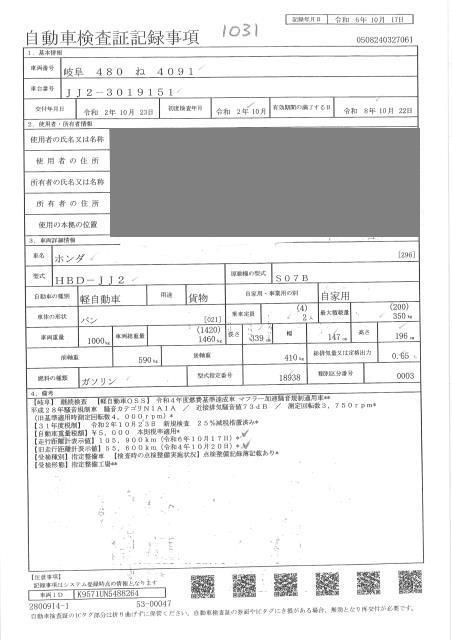 記録年月日 令和 6年10月 17日
自動車検査証記録事項
1031
0508240327061
1．基本情報
車両番号 岐阜 480 ね 4091
車台番号 JJ2-3019151
交付年月日 令和 2年10月 23日 初度検査年月 令和 2年10月 有効期間の満了する日 令和 8年10月 22日
2．使用者・所有者情報
使用者の氏名又は名称
使用者の住所
所有者の氏名又は名称
所有者の住所
使用の本拠の位置
3．車両詳細情報
車名 ホンダ [296]
型式 HBD-JJ2 原動機の型式 S07B
自動車の種別 軽自動車 用途 貨物 自家用・事業用の別 自家用
車体の形状 バン [021] 乗車定員 (4) 2人 最大積載量 (200) 350kg
車両重量 1000kg 車両総重量 (1420) 1460kg 長さ 339cm 幅 147cm 高さ 196cm
前軸重 590kg 後軸重 410kg 総排気量又は定格出力 0.65L
燃料の種類 ガソリン 型式指定番号 18938 類別区分番号 0003
4．備考
【岐阜】 継続検査 【軽自動車OSS】 令和4年度燃費基準達成車 マフラー加速騒音規制適用車**
平成28年騒音規制車 騒音カテゴリN1A1A ／ 近接排気騒音値73dB ／ 測定回転数3,750rpm**
(旧基準適用時測定回転数4,000rpm)**
【31年度税制】 令和2年10月23日 新規検査 25%減税措置済み**
【自動車重量税額】¥5,000 本則税率適用**
【走行距離計表示値】105,900km (令和6年10月17日)**
【旧走行距離計表示値】55,800km (令和4年10月20日)**
【受検種別】指定整備車 【検査時の点検整備実施状況】点検整備記録簿記載あり**
【受検形態】指定整備工場**
【注意事項】
記録事項はシステム登録時点の情報となります
車両ID K9571UN5488264
2800914-1 53-00047
自動車検査証のICタグ部分は折り曲げずに保管ください。自動車検査証の券面やICタグにき損がある場合、無効となり再交付が必要です。